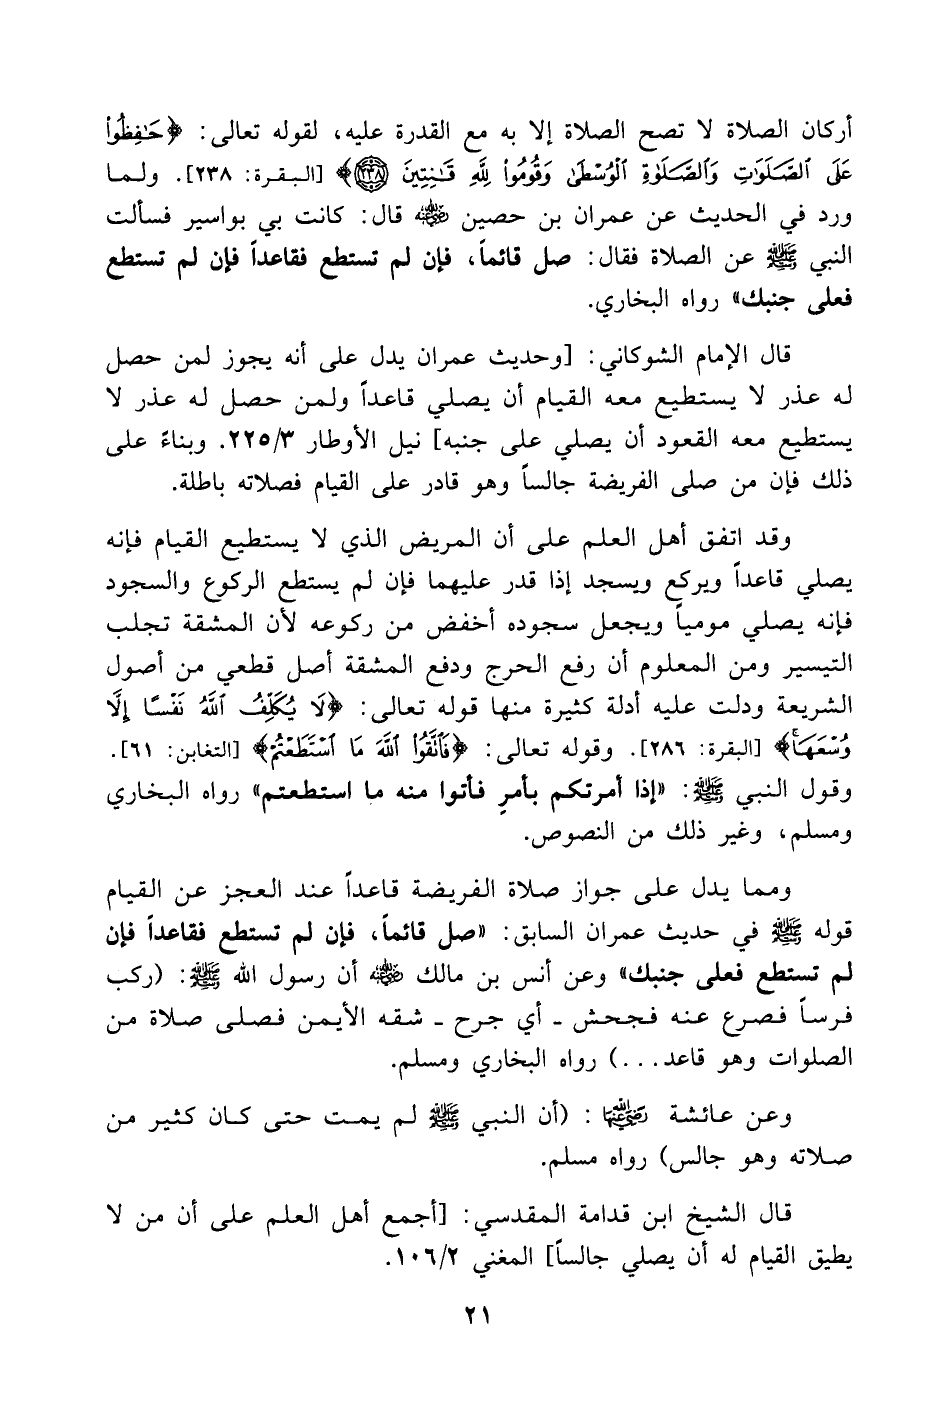 أركان الصلاة لا تصح الصلاة إلا به مع القدرة عليه، لقوله تعالى: ﴿حَٰفِظُوا۟
عَلَى ٱلصَّلَوَٰتِ وَٱلصَّلَوٰةِ ٱلْوُسْطَىٰ وَقُومُوا۟ لِلَّهِ قَٰنِتِينَ ۝٢٣٨﴾ [البقرة: ٢٣٨]. ولما
ورد في الحديث عن عمران بن حصين رضي الله عنه قال: كانت بي بواسير فسألت
النبي ﷺ عن الصلاة فقال: صل قائماً، فإن لم تستطع فقاعداً فإن لم تستطع
فعلى جنبك» رواه البخاري.
قال الإمام الشوكاني: [وحديث عمران يدل على أنه يجوز لمن حصل
له عذر لا يستطيع معه القيام أن يصلي قاعداً ولمن حصل له عذر لا
يستطيع معه القعود أن يصلي على جنبه] نيل الأوطار ٢٢٥/٣. وبناءً على
ذلك فإن من صلى الفريضة جالساً وهو قادر على القيام فصلاته باطلة.
وقد اتفق أهل العلم على أن المريض الذي لا يستطيع القيام فإنه
يصلي قاعداً ويركع ويسجد إذا قدر عليهما فإن لم يستطع الركوع والسجود
فإنه يصلي مومياً ويجعل سجوده أخفض من ركوعه لأن المشقة تجلب
التيسير ومن المعلوم أن رفع الحرج ودفع المشقة أصل قطعي من أصول
الشريعة ودلت عليه أدلة كثيرة منها قوله تعالى: ﴿لَا يُكَلِّفُ ٱللَّهُ نَفْسًا إِلَّا
وُسْعَهَاۚ﴾ [البقرة: ٢٨٦]. وقوله تعالى: ﴿فَٱتَّقُوا۟ ٱللَّهَ مَا ٱسْتَطَعْتُمْ﴾ [التغابن: ٦١].
وقول النبي ﷺ: «إذا أمرتكم بأمرٍ فأتوا منه ما استطعتم» رواه البخاري
ومسلم، وغير ذلك من النصوص.
ومما يدل على جواز صلاة الفريضة قاعداً عند العجز عن القيام
قوله ﷺ في حديث عمران السابق: «صل قائماً، فإن لم تستطع فقاعداً فإن
لم تستطع فعلى جنبك» وعن أنس بن مالك رضي الله عنه أن رسول الله ﷺ: (ركب
فرساً فصرع عنه فجحش ـ أي جرح ـ شقه الأيمن فصلى صلاة من
الصلوات وهو قاعد...) رواه البخاري ومسلم.
وعن عائشة رضي الله عنها : (أن النبي ﷺ لم يمت حتى كان كثير من
صلاته وهو جالس) رواه مسلم.
قال الشيخ ابن قدامة المقدسي: [أجمع أهل العلم على أن من لا
يطيق القيام له أن يصلي جالساً] المغني ١٠٦/٢.
٢١